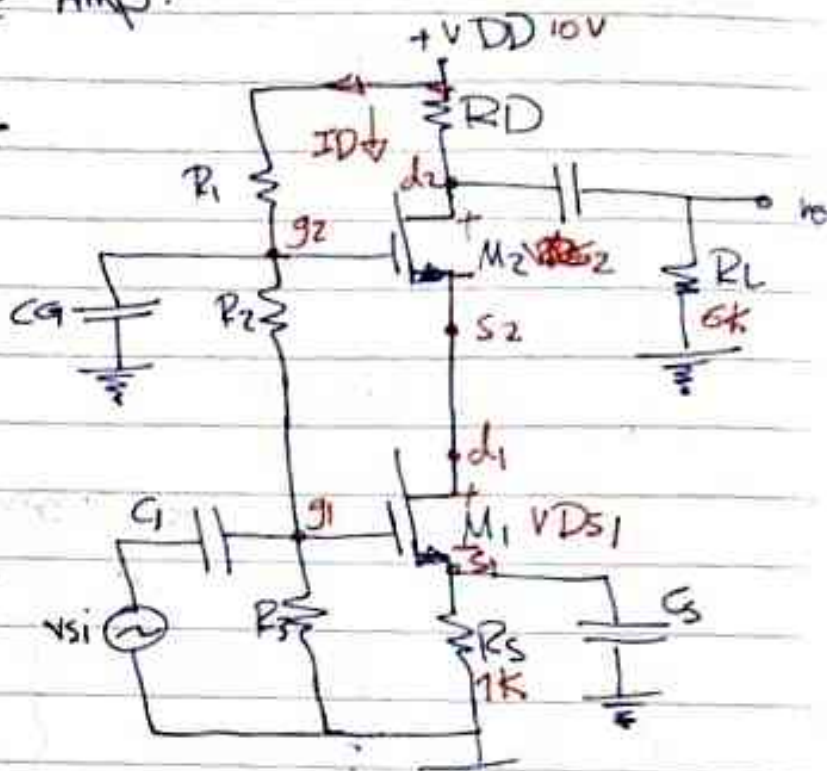 Amp.
+VDD 10V
RD
ID
R1
d2
g2
M2
vo
CG
R2
RL
6K
S2
d1
C1
g1
M1 VDS1
S1
vsi
R3
RS
1K
CS